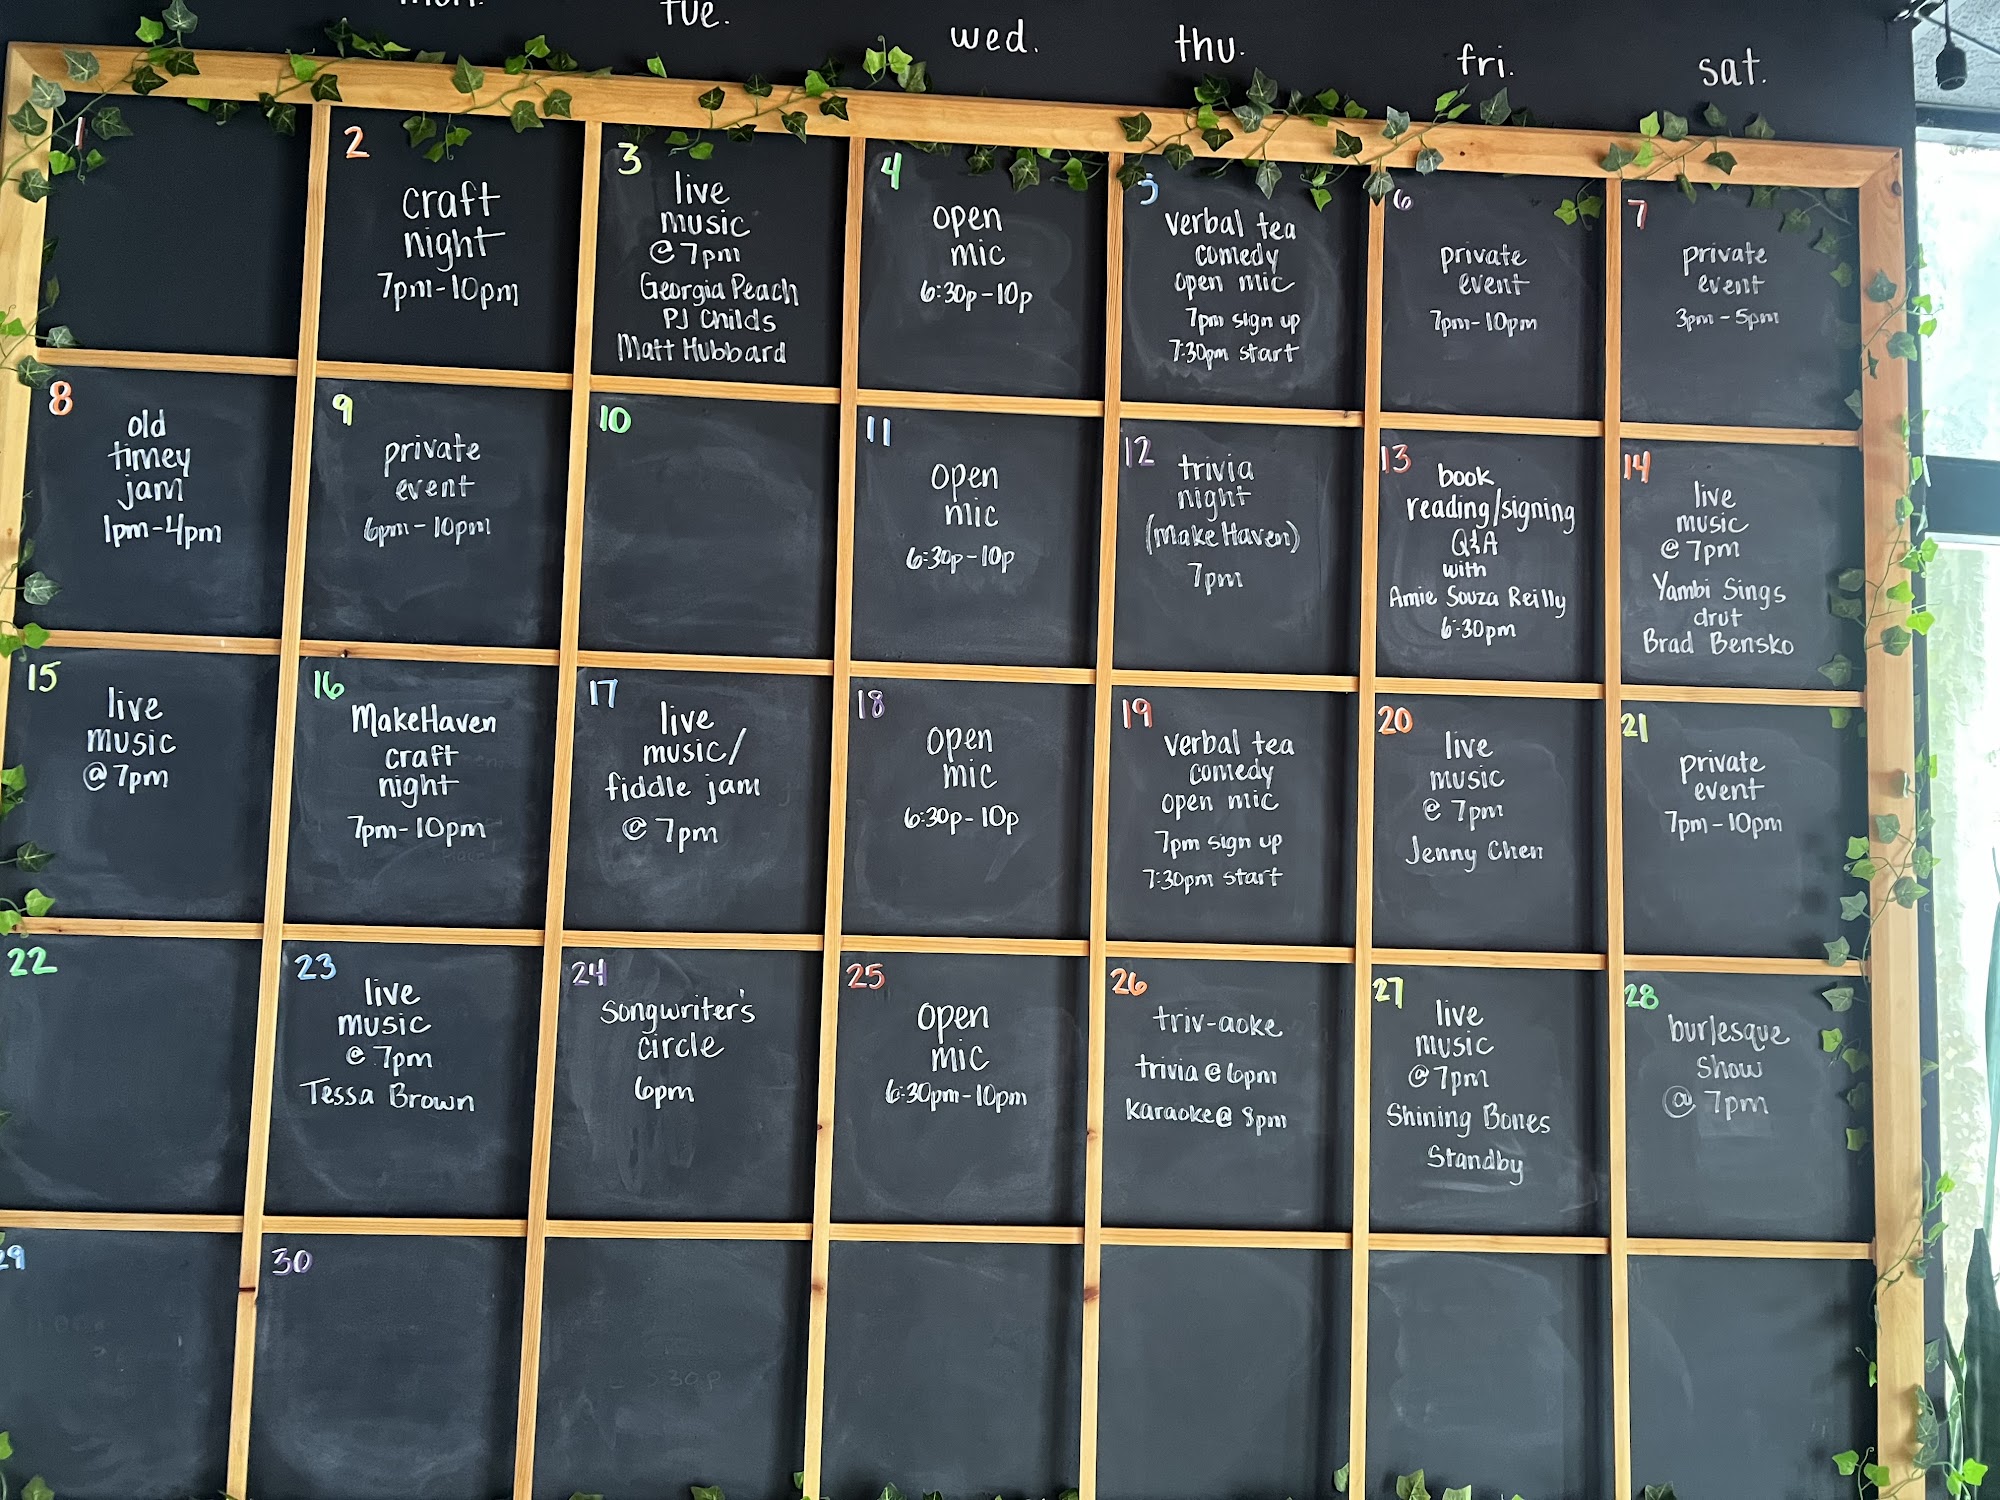 mon.
tue.
wed.
thu.
fri.
sat.
1
2
craft
night
7pm-10pm
3
live
music
@ 7pm
Georgia Peach
PJ Childs
Matt Hubbard
4
open
mic
6:30p-10p
5
verbal tea
comedy
open mic
7pm sign up
7:30pm start
6
private
event
7pm-10pm
7
private
event
3pm-5pm
8
old
timey
jam
1pm-4pm
9
private
event
6pm-10pm
10
11
open
mic
6:30p-10p
12
trivia
night
(MakeHaven)
7pm
13
book
reading/signing
Q&A
with
Amie Souza Reilly
6:30pm
14
live
music
@ 7pm
Yambi Sings
drut
Brad Bensko
15
live
music
@ 7pm
16
MakeHaven
craft
night
7pm-10pm
17
live
music/
fiddle jam
@ 7pm
18
open
mic
6:30p-10p
19
verbal tea
comedy
open mic
7pm sign up
7:30pm start
20
live
music
@ 7pm
Jenny Chen
21
private
event
7pm-10pm
22
23
live
music
@ 7pm
Tessa Brown
24
songwriter's
circle
6pm
25
open
mic
6:30pm-10pm
26
triv-aoke
trivia @ 6pm
karaoke @ 8pm
27
live
music
@ 7pm
Shining Bones
Standby
28
burlesque
show
@ 7pm
29
30